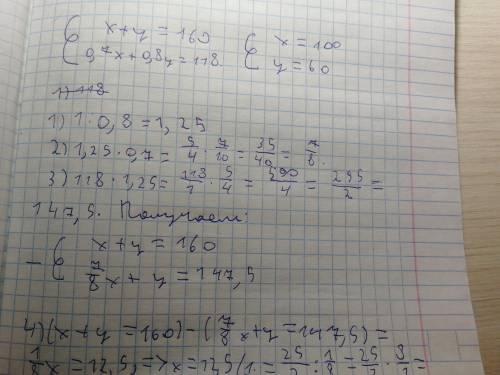 { x+y=160 { x=100
0,7x+0,8y=118 y=60
1) 118
1) 1·0,8=1,25
2) 1,25·0,7= 5/4 · 7/10 = 35/40 = 7/8.
3) 118·1,25= 118/1 · 5/4 = 590/4 = 295/2 =
147,5. Получаем:
- { x+y=160
7/8x+y=147,5
4) (x+y=160)-(7/8x+y=147,5)=
1/8x=12,5